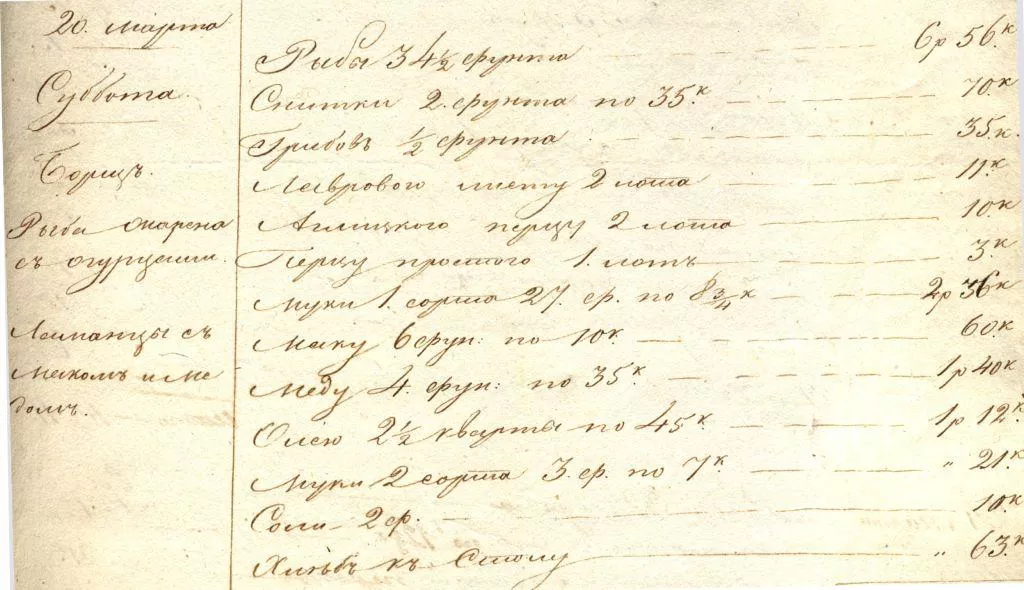 20. марта
Суббота.
Борщъ.
Рыба жарена
съ огурцами.
Ламанцы съ
макомъ и ме
домъ.
Рыбы 34½ фунта 6р 56.к
Снитки 2. фунта по 35.к 70.к
Грибовъ ½ фунта 35.к.
Лаврового листу 2 лота 11.к
Англицкого перцу 2 лота 10.к
Перцу простого 1. лотъ 3.к
Муки 1. сорта 27. ф. по 8¾ к 2р 36к
Маку 6 фун: по 10к. 60.к
Меду 4. фун: по 35.к 1р 40к
Олею 2½ кварты по 45к. 1р 12.к
Муки 2 сорта 3. ф. по 7.к " 21.к
Соли 2 ф. 10.к
Хлѣбъ къ столу " 63.к